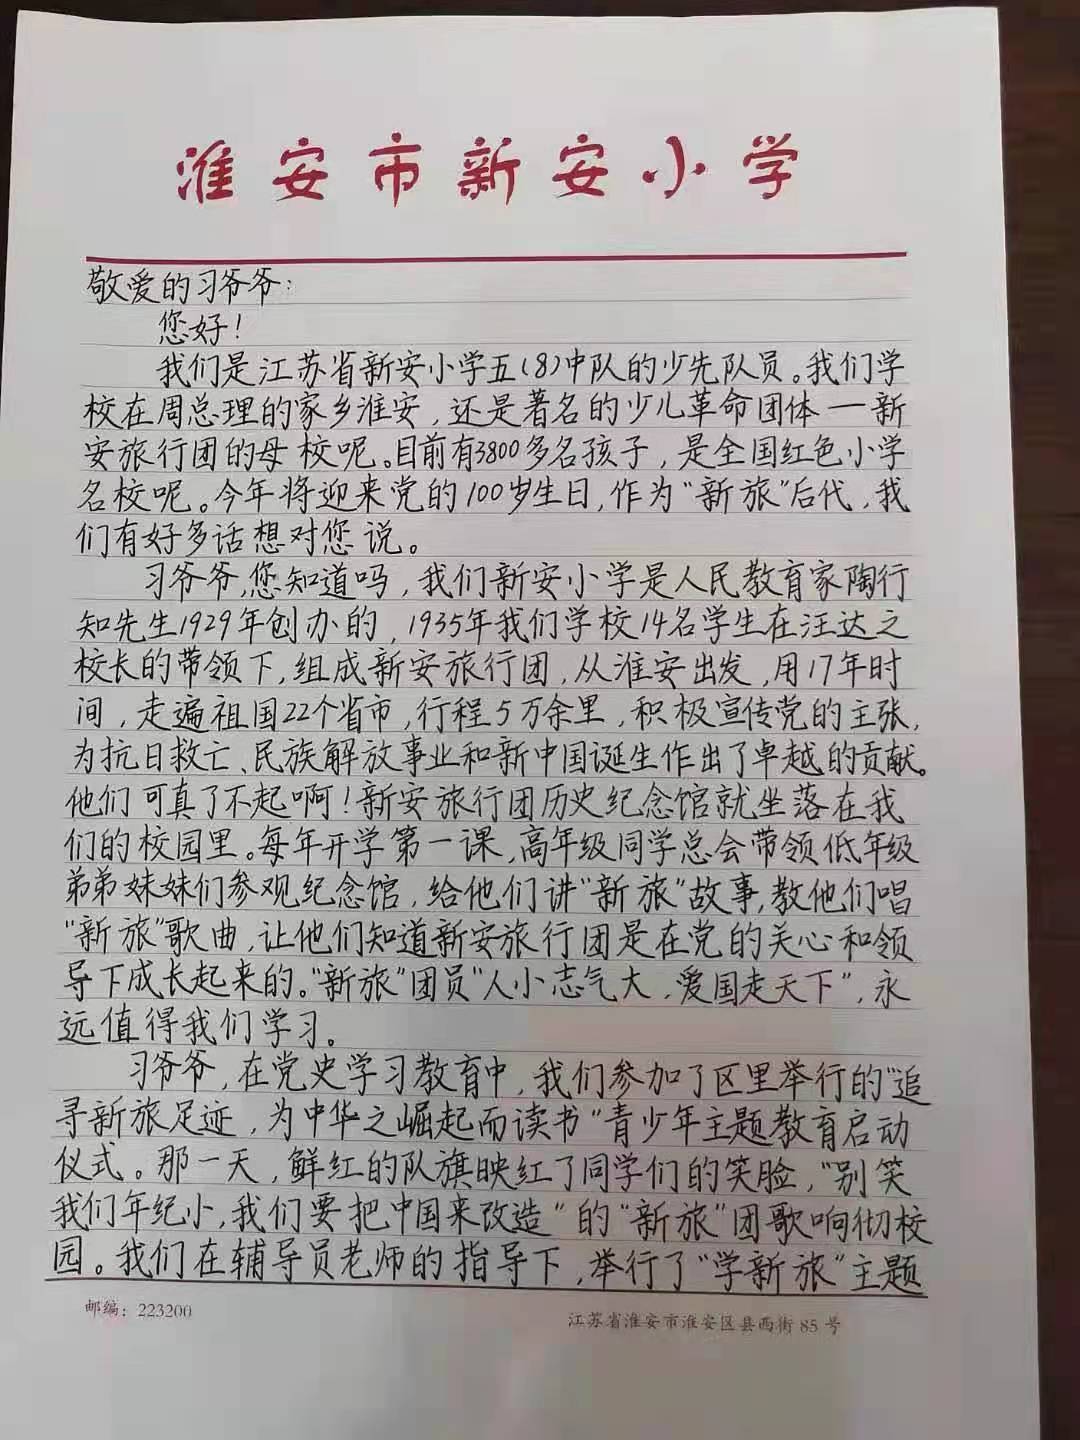 淮安市新安小学
敬爱的习爷爷:
您好!
我们是江苏省新安小学五(8)中队的少先队员。我们学
校在周总理的家乡淮安,还是著名的少儿革命团体一新
安旅行团的母校呢。目前有3800多名孩子,是全国红色小学
名校呢。今年将迎来党的100岁生日,作为"新旅"后代,我
们有好多话想对您说。
习爷爷,您知道吗,我们新安小学是人民教育家陶行
知先生1929年创办的,1935年我们学校14名学生在汪达之
校长的带领下,组成新安旅行团,从淮安出发,用17年时
间,走遍祖国22个省市,行程5万余里,积极宣传党的主张,
为抗日救亡、民族解放事业和新中国诞生作出了卓越的贡献。
他们可真了不起啊!新安旅行团历史纪念馆就坐落在我
们的校园里。每年开学第一课,高年级同学总会带领低年级
弟弟妹妹们参观纪念馆,给他们讲"新旅"故事,教他们唱
"新旅"歌曲,让他们知道新安旅行团是在党的关心和领
导下成长起来的。"新旅"团员"人小志气大,爱国走天下",永
远值得我们学习。
习爷爷,在党史学习教育中,我们参加了区里举行的"追
寻新旅足迹,为中华之崛起而读书"青少年主题教育启动
仪式。那一天,鲜红的队旗映红了同学们的笑脸,"别笑
我们年纪小,我们要把中国来改造"的"新旅"团歌响彻校
园。我们在辅导员老师的指导下,举行了"学新旅"主题
邮编:223200
江苏省淮安市淮安区县西街85号